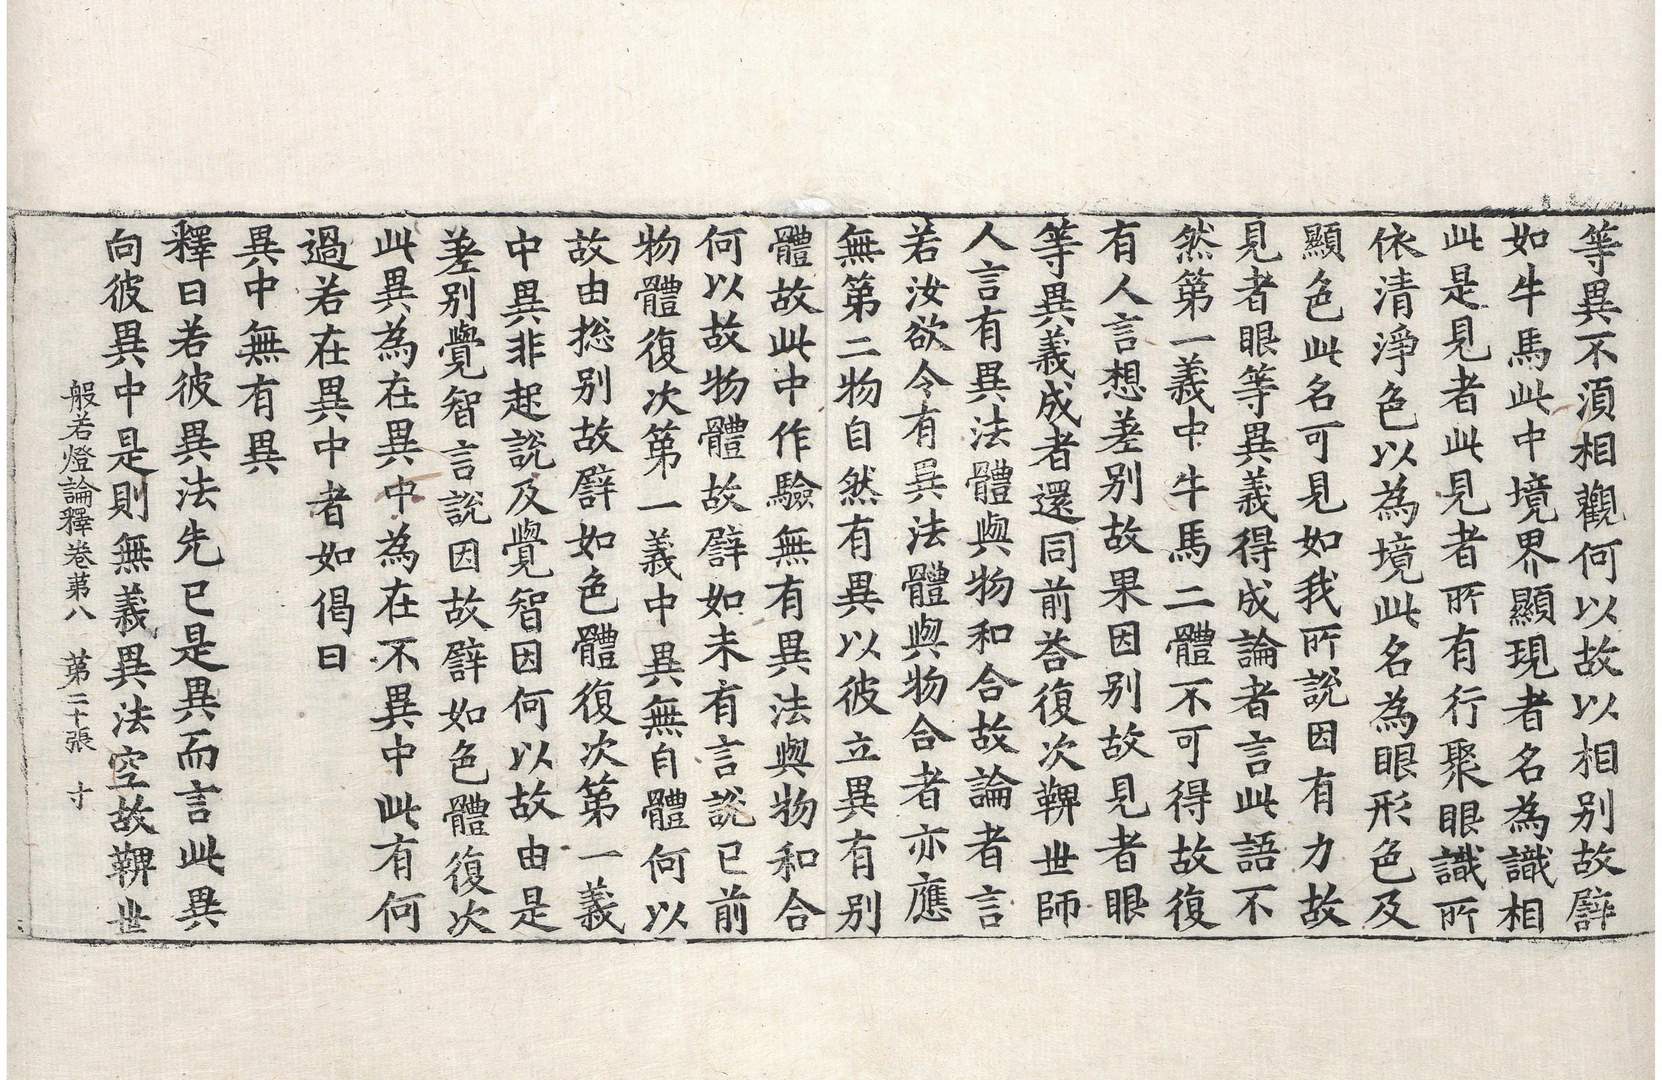 等異不湏相觀何以故以相別故譬
如牛馬此中境界顯現者名為識相
此是見者此見者所有行聚眼識所
依清淨色以為境此名為眼形色及
顯色此名可見如我所說因有力故
見者眼等異義得成論者言此語不
然第一義中牛馬二體不可得故復
有人言想差別故果因別故見者眼
等異義成者還同前荅復次鞞世師
人言有異法體與物和合故論者言
若汝欲令有異法體與物合者亦應
無第二物自然有異以彼立異有別
體故此中作驗無有異法與物和合
何以故物體故譬如未有言說已前
物體復次第一義中異無自體何以
故由捴別故譬如色體復次第一義
中異非起說及覺智因何以故由是
差別覺智言說因故譬如色體復次
此異為在異中為在不異中此有何
過若在異中者如偈曰
異中無有異
釋曰若彼異法先已是異而言此異
向彼異中是則無義異法空故鞞世
般若燈論釋卷苐八　苐二十張　寸